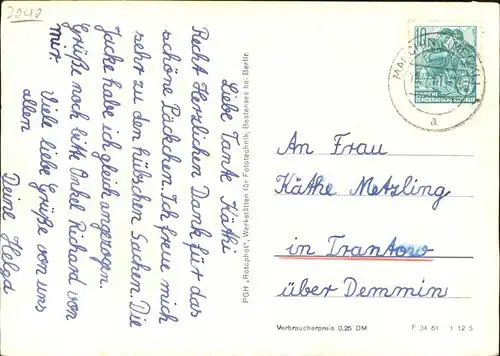 2040
Liebe Tante Käthi
Recht Herzlichen Dank für das
schöne Päckchen. Ich freue mich
sehr zu den hübschen Sachen. Die
Jacke habe ich gleich angezogen.
Grüße noch bitte Onkel Richard von
mir. Viele liebe Grüße von uns
allen
Deine Helga
PGH „Rotophot", Werkstätten für Fototechnik, Bestensee bei Berlin
10
DEUTSCHE
DEMOKRATISCHE REPUBLIK
MALCHIN
a
An Frau
Käthe Metzling
in Trantow
über Demmin
Verbraucherpreis 0,25 DM
F 34 61 1 12 5